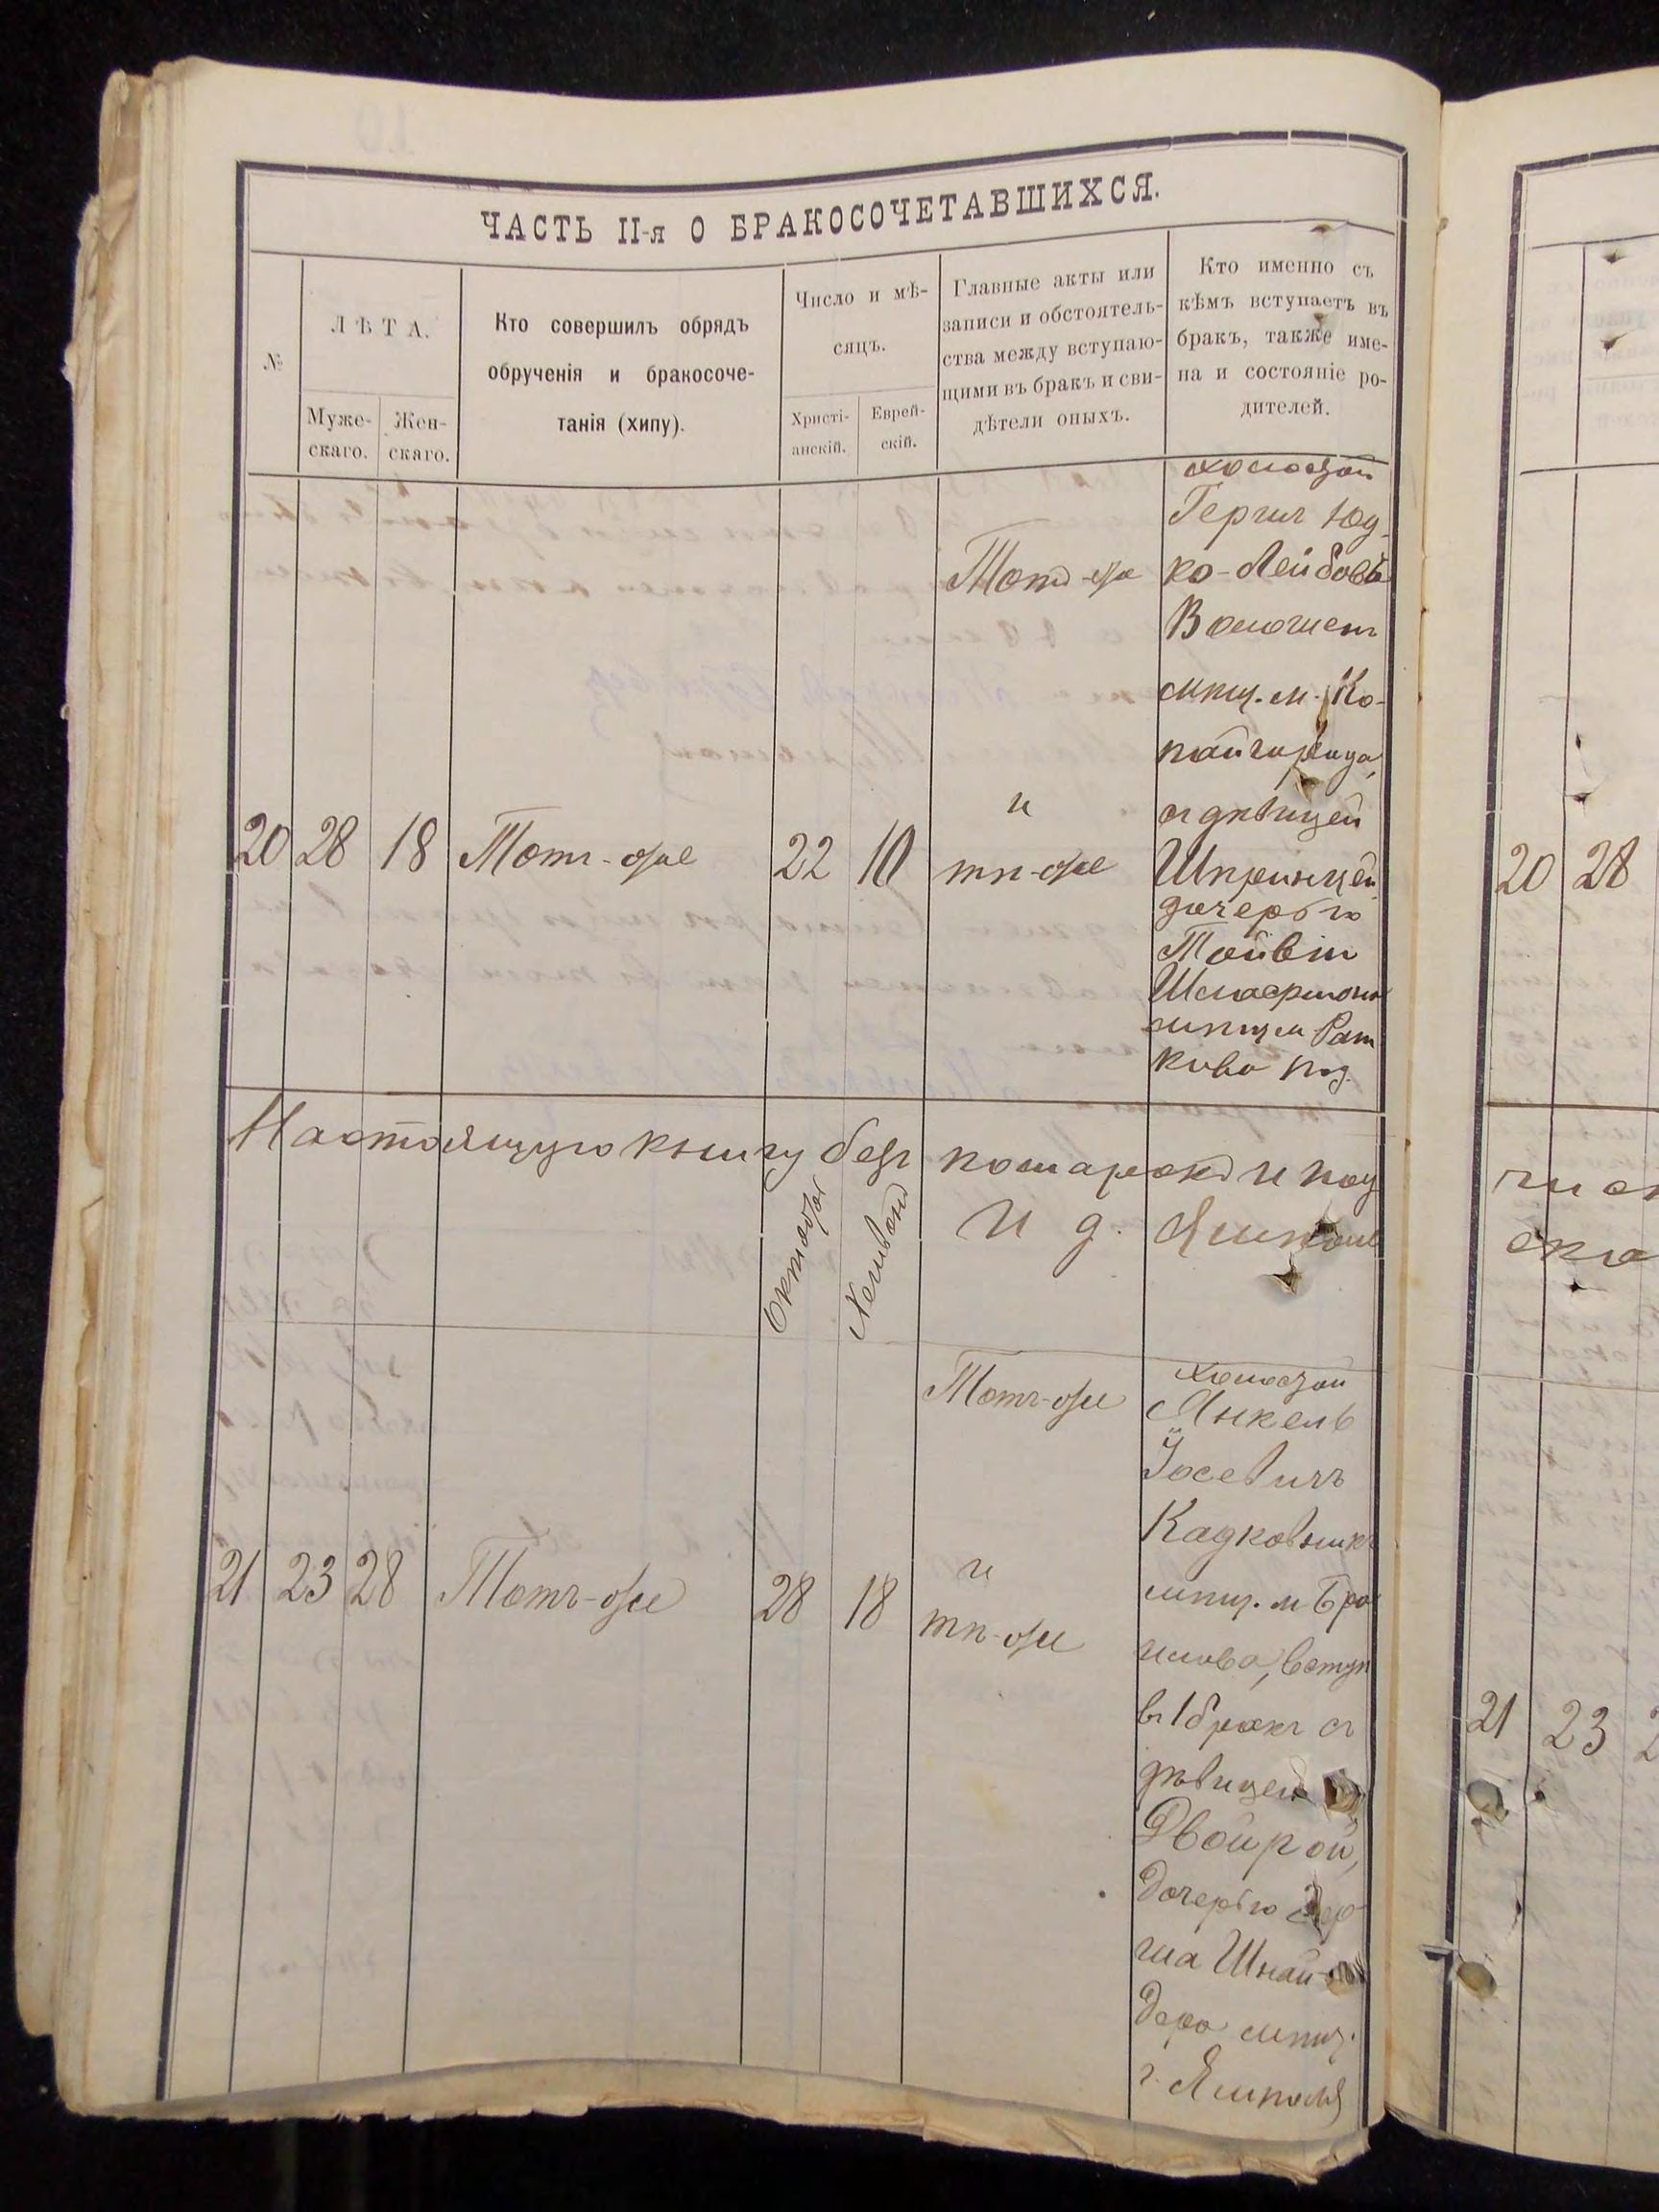 ЧАСТЬ II-я О БРАКОСОЧЕТАВШИХСЯ.
№
ЛѢТА.
Муже-
скаго.
Жен-
скаго.
Кто совершилъ обрядъ
обрученія и бракосоче-
танія (хипу).
Число и мѣ-
сяцъ.
Христі-
анскій.
Еврей-
скій.
Главные акты или
записи и обстоятель-
ства между вступаю-
щими въ бракъ и сви-
дѣтели оныхъ.
Кто именно съ
кѣмъ вступаетъ въ
бракъ, также име-
на и состояніе ро-
дителей.
20 28 18 Тотъ-же 22 10
Тотъ-же
и
тѣ-же
холостой
Гершъ Юд-
ко-Лейбовъ
мѣщ. м. Ко-
пайгорода,
съ дѣвицей
Шпринцей
дочерью
Тойвіи
мѣщ м
Настоящую книгу безъ помарокъ и под
И д. Ямполь
Октябрь
Хешванъ
21 23 28 Тотъ-же 28 18
Тотъ-же
и
тѣ-же
холостой
Янкель
Іосевичъ
мѣщ. м Бра
илова, вступ
въ 1 бракъ съ
дѣвицей
Двойрой,
дочерью Гер
ша Шнай-
дера мѣщ.
г. Ямполя
20 28
21 23 2